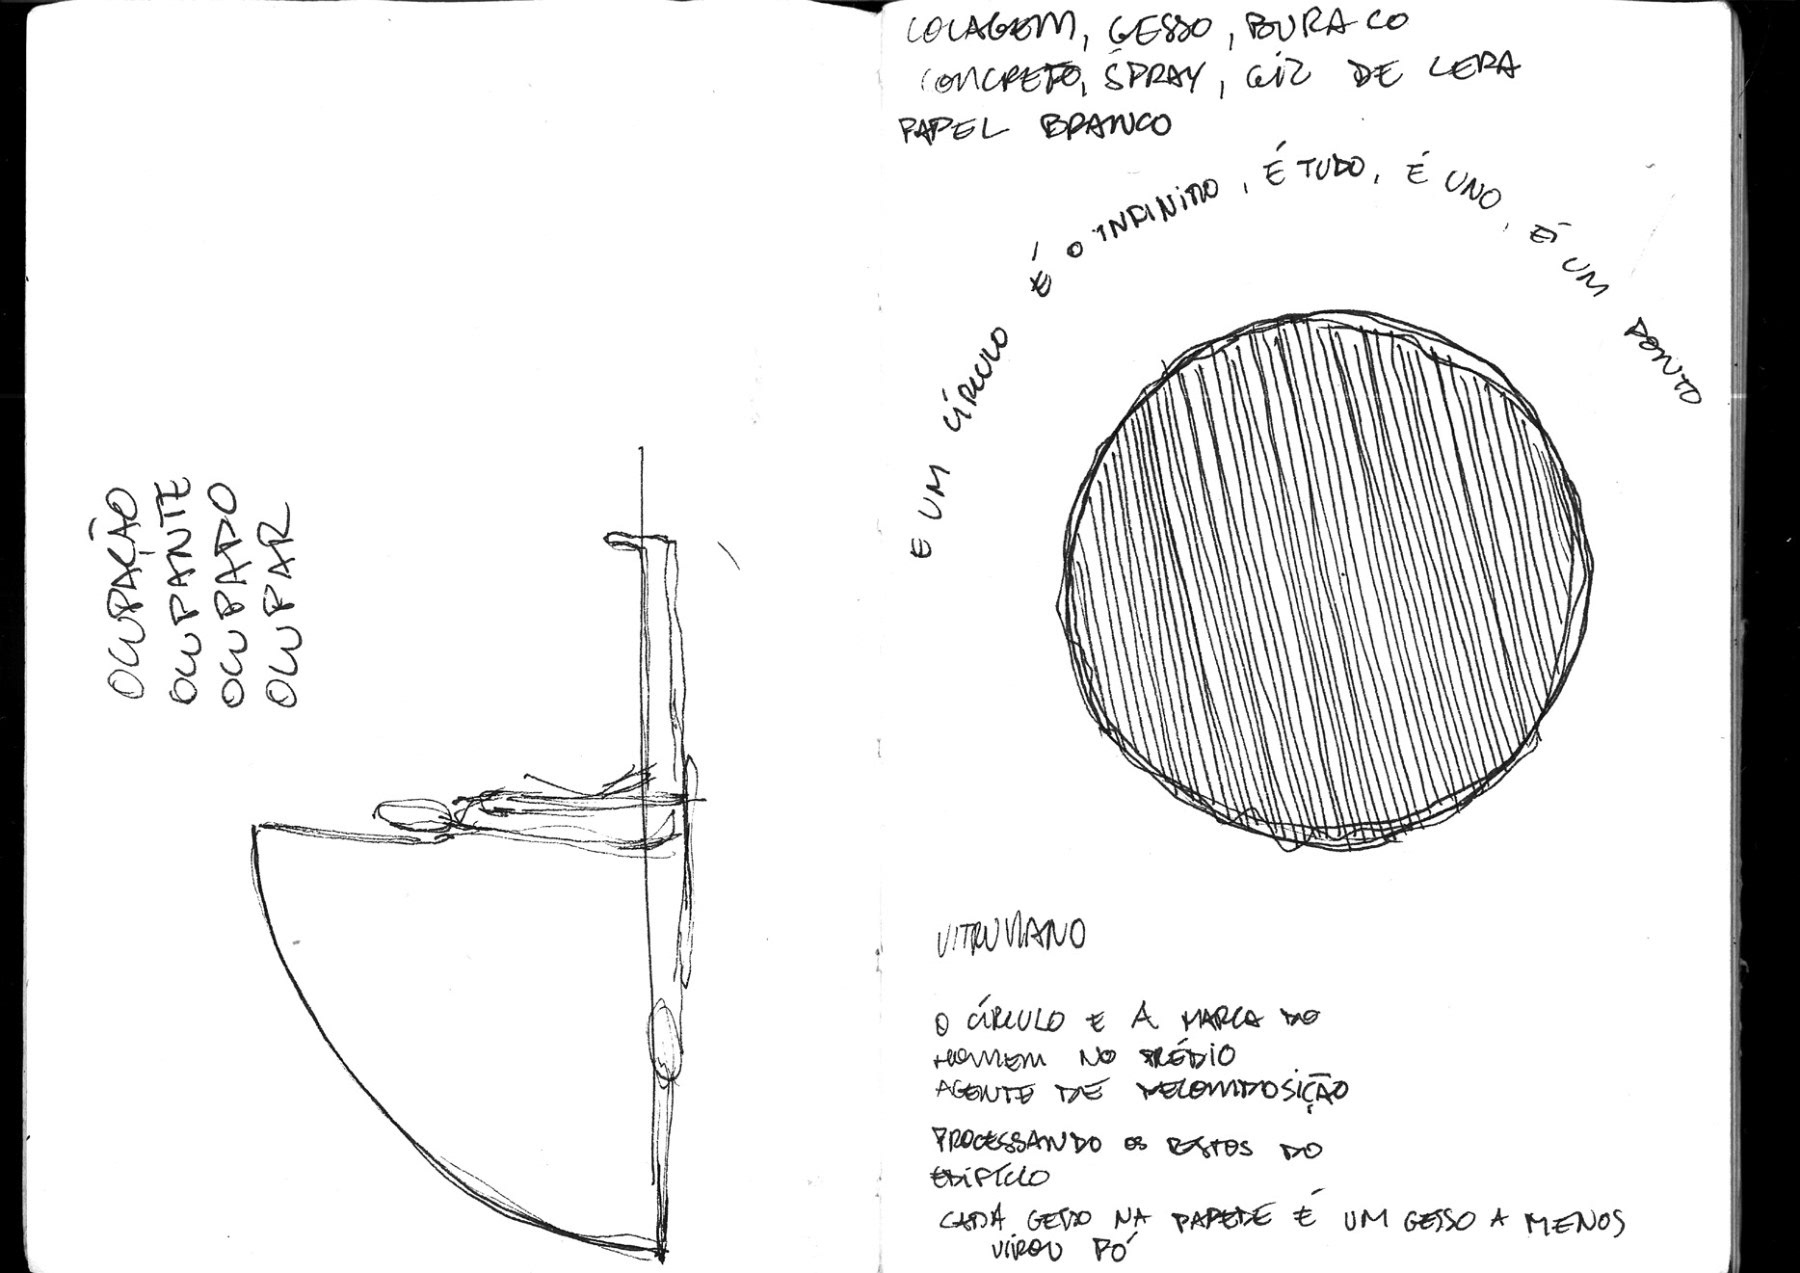 OCUPAÇÃO
OCUPANTE
OCUPADO
OCUPAR
COLAGEM, GESSO, BURACO
CONCRETO, SPRAY, GIZ DE CERA
PAPEL BRANCO
E UM CÍRCULO É O INFINITO, É TUDO, É UNO, É UM PONTO
VITRUVIANO
O CÍRCULO E A MARCA DO
HOMEM NO PRÉDIO
AGENTE DE DECOMPOSIÇÃO
PROCESSANDO OS RESTOS DO
EDIFÍCIO
CADA GESSO NA PAREDE É UM GESSO A MENOS
VIROU PÓ